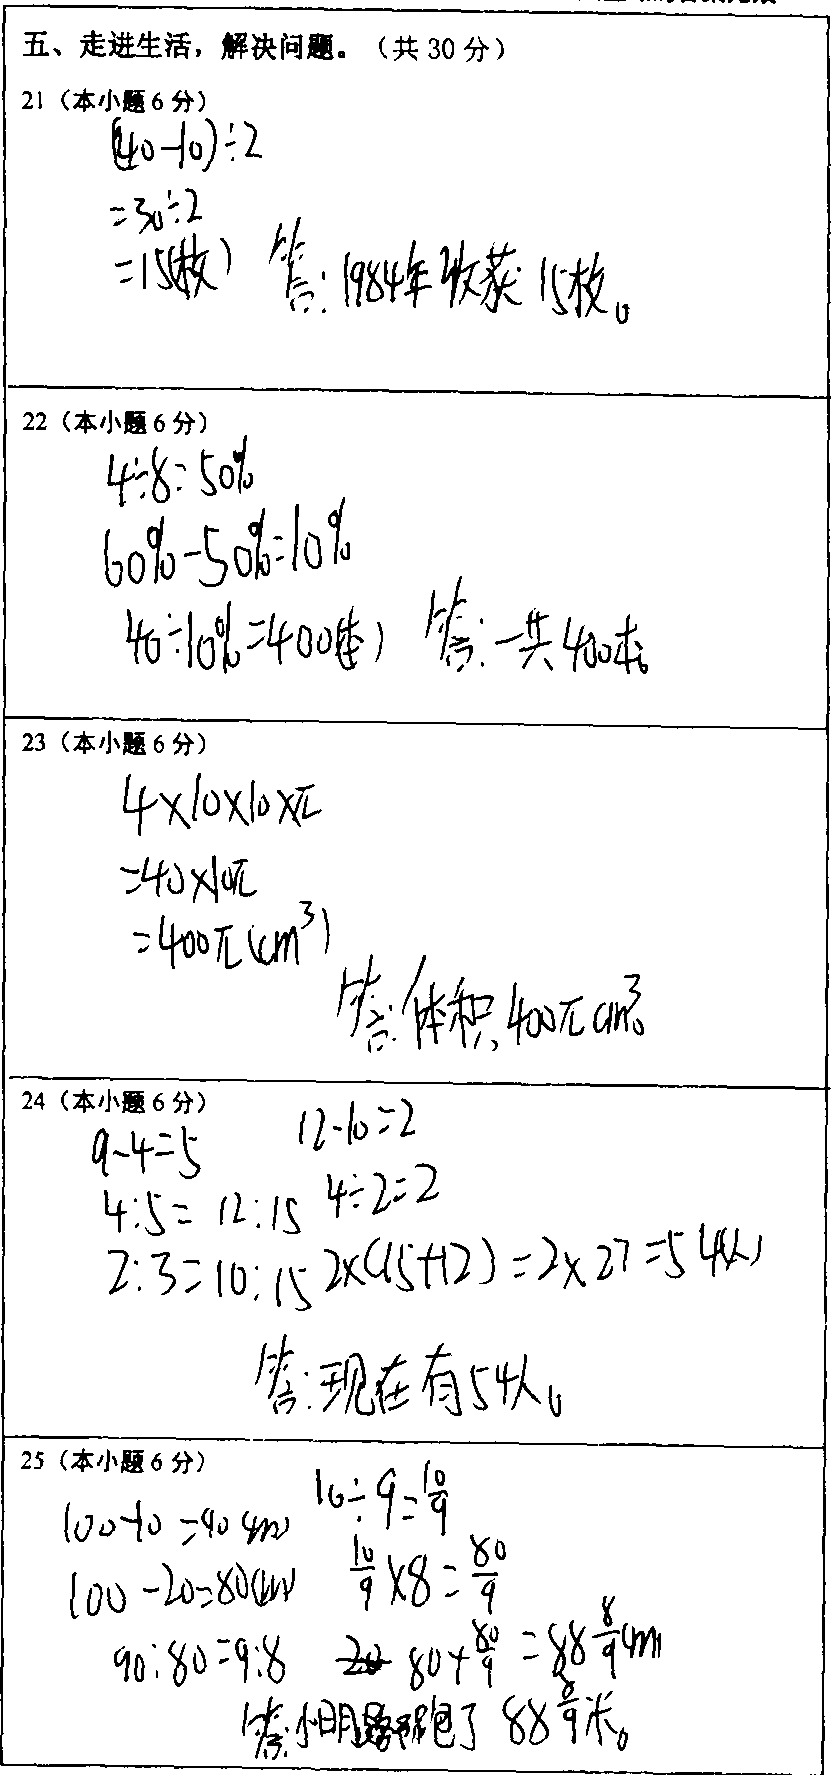 五、走进生活，解决问题。（共 30 分）
21（本小题 6 分）
(40-10)÷2
=30÷2
=15(枚) 答:1984年收获15枚。
22（本小题 6 分）
4÷8=50%
60%-50%=10%
40÷10%=400(本) 答:一共400本。
23（本小题 6 分）
4×10×10×π
=40×10π
=400π(cm³)
答:体积400πcm³。
24（本小题 6 分）
9-4=5 12-10=2
4:5=12:15 4÷2=2
2:3=10:15 2×(15+12)=2×27=54(人)
答:现在有54人。
25（本小题 6 分）
100-10=90(m) 10÷9=10/9
100-20=80(m) 10/9×8=80/9
90:80=9:8 80+80/9=88 8/9(m)
答:小明跑了88 8/9米。